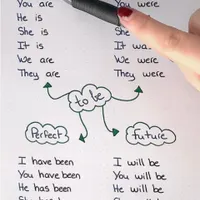 You are
He is
She is
It is
We are
They are
You were
were
It was
We were
They were
to be
Perfect
Future
I have been
You have been
He has been
I will be
You will be
He will be